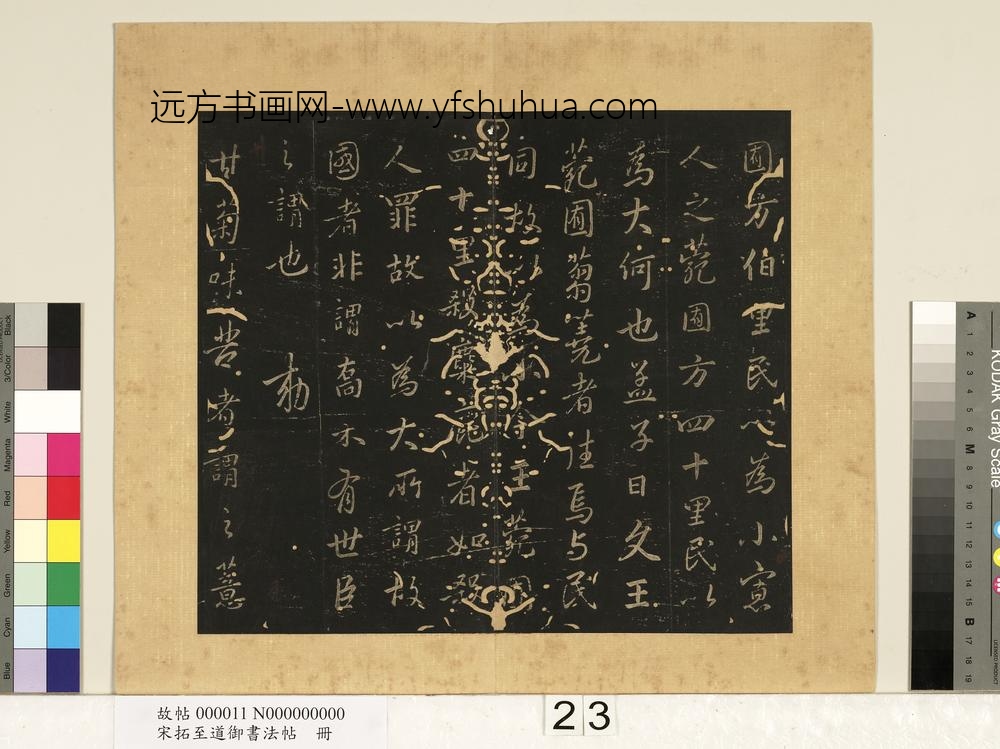 远方书画网-www.yfshuhua.com
囿方伯里民以為小寡
人之菀囿方四十里民以
為大何也孟子曰文王
菀囿芻蕘者往焉与民
同故以為小今王菀囿
四十里殺麋鹿者如殺
人罪故以為大所謂故
國者非謂喬木有世臣
之謂也 勅
甘菊味苦者謂之薏
故帖 000011 N000000000
宋拓至道御書法帖 冊
23
Black
3/Color
White
Magenta
Red
Yellow
Green
Cyan
Blue
KODAK Gray Scale
A 1 2 3 4 5 6 M 8 9 10 11 12 13 14 15 B 17 18 19